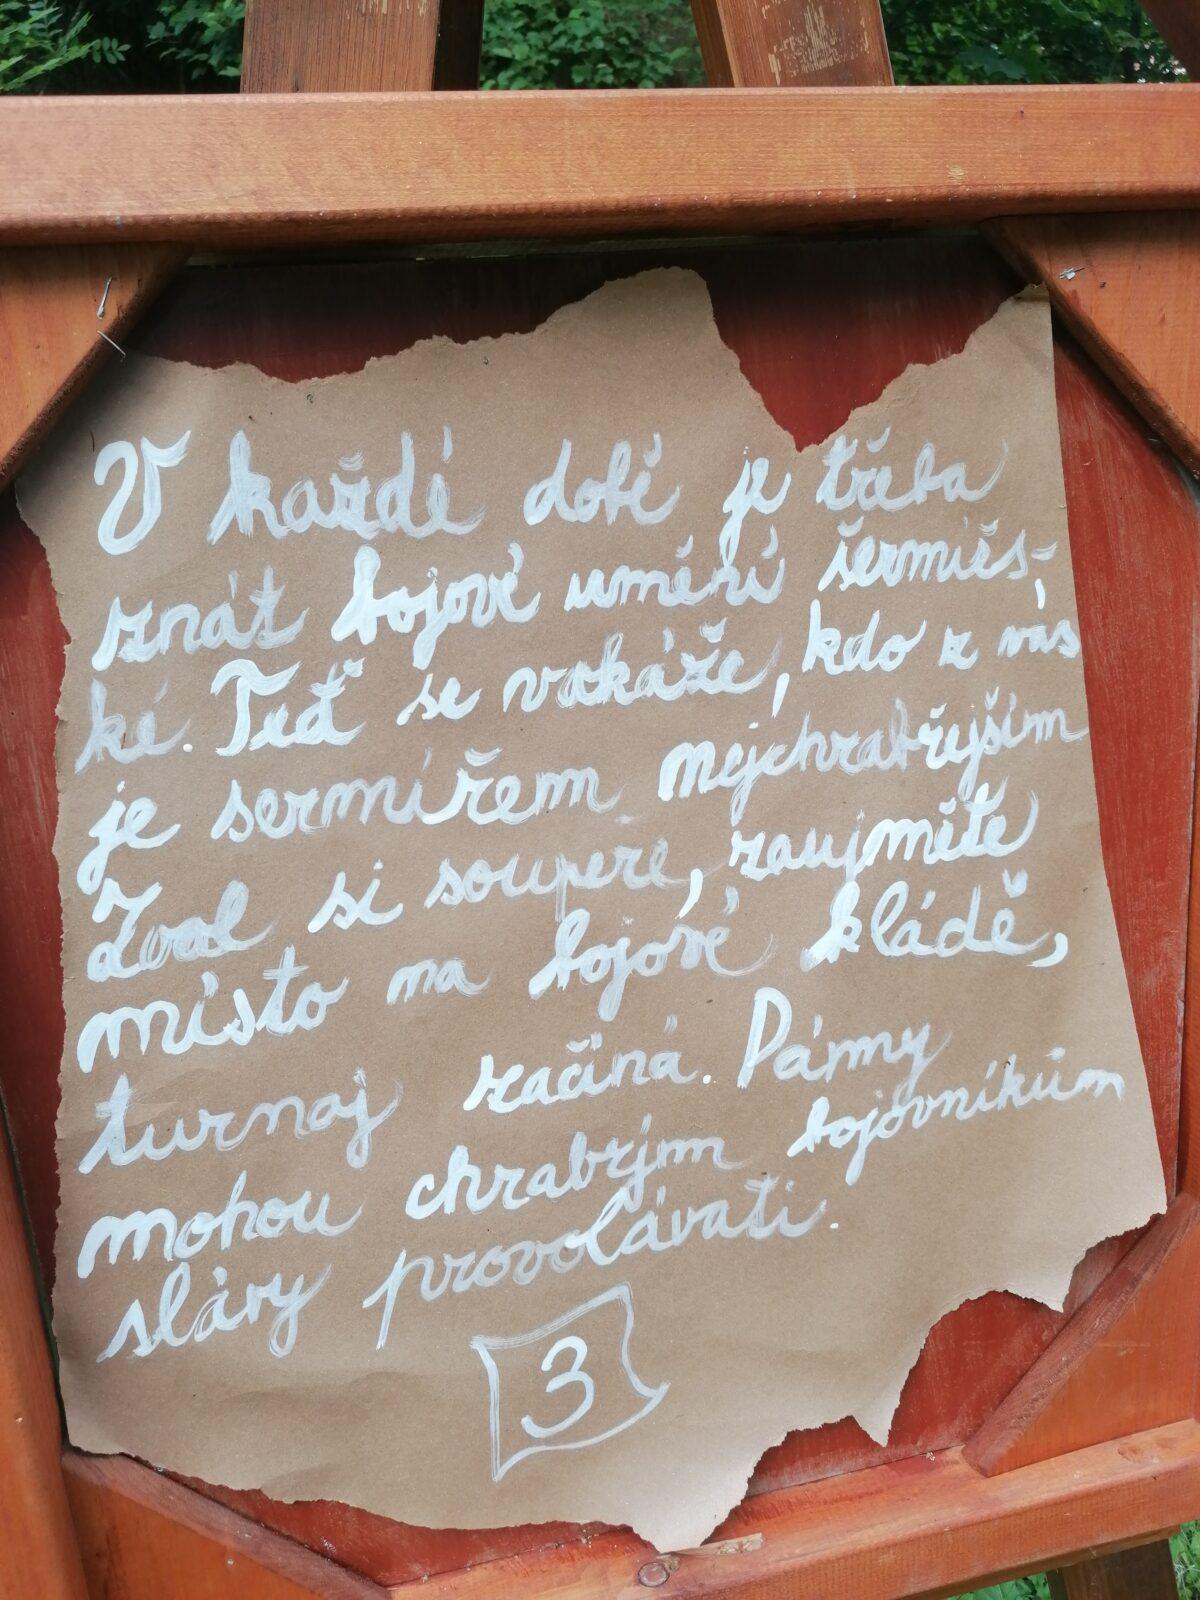 V každé době je třeba
znát bojové umění šermířs-
ké. Teď se vokáže, kdo z vás
je sermířem nejchrabřejším
Zvol si soupeře, zaujměte
místo na bojové kládě,
turnaj začíná. Dámy
mohou chrabrým bojovníkům
slávy provolávati.
3